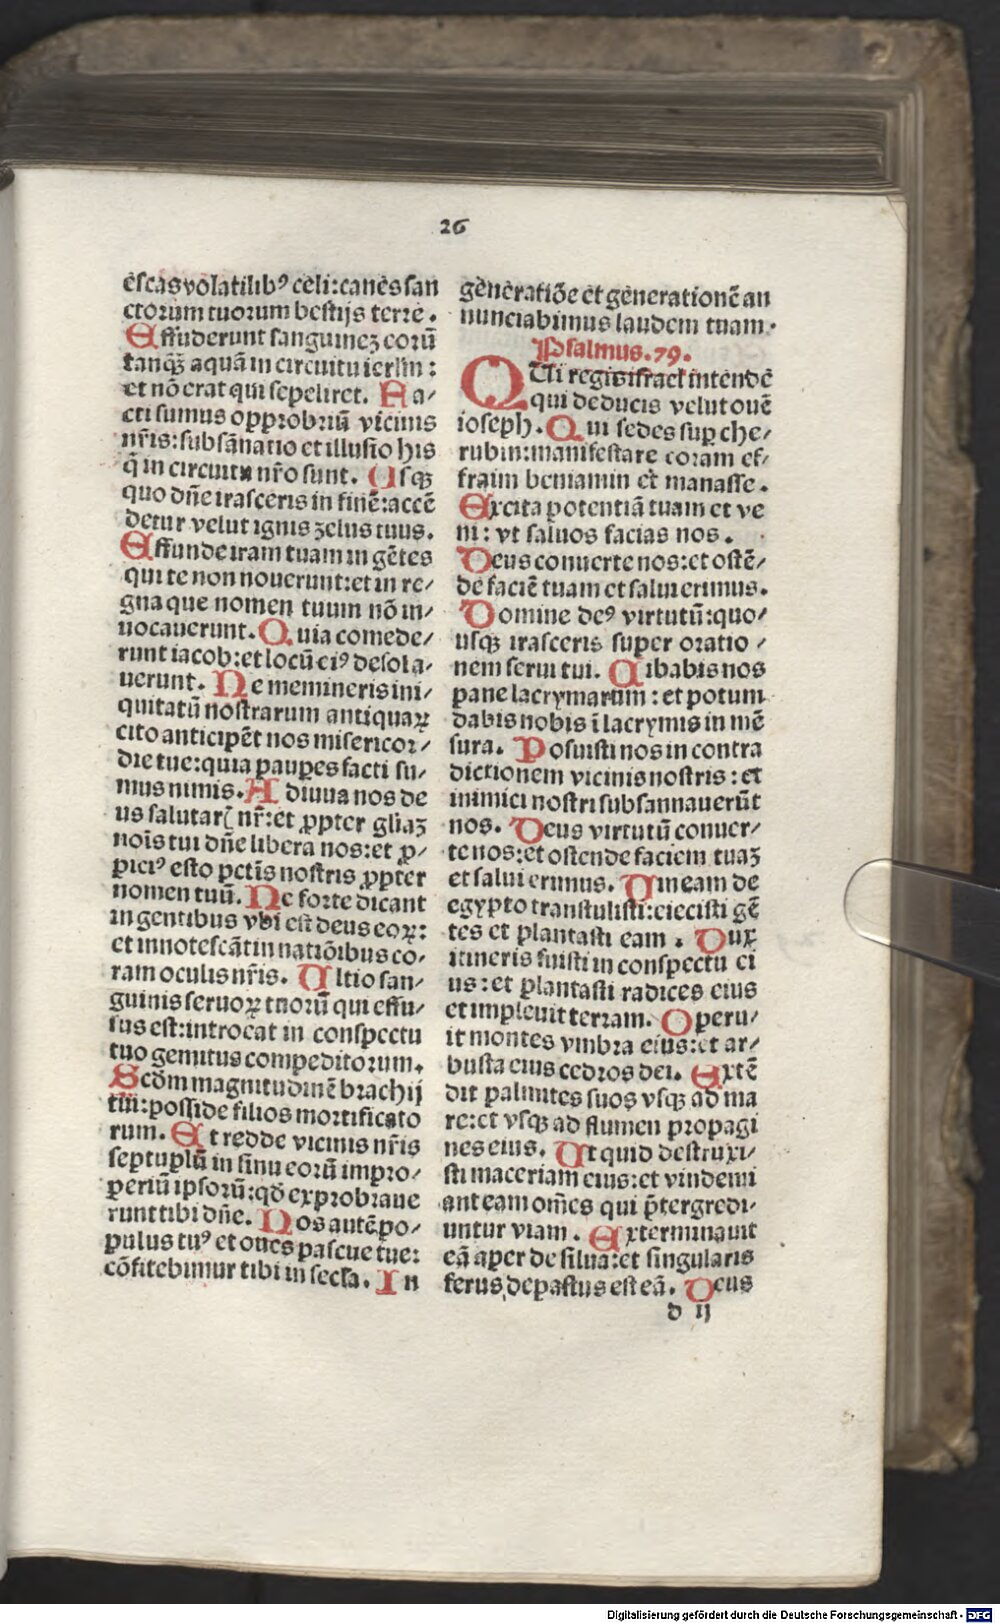 26
escas volatilibꝰ celi: carnes san
ctorum tuorum bestijs terre.
Effuderunt sanguinez eorū
tanqꝫ aquā in circuitu ierlm:
et nō erat qui sepeliret. Fa-
cti sumus opprobriū vicinis
nr̄is: subsānatio et illusio his
q̄ in circuitu nr̄o sunt. Usqꝫ
quo dn̄e irasceris in finē: accē
detur velut ignis zelus tuus.
Effunde iram tuam in gētes
qui te non nouerunt: et in re-
gna que nomen tuum nō in-
uocauerunt. Quia comede-
runt iacob: et locū eiꝰ desola-
uerunt. Ne memineris ini-
quitatū nostrarum antiquaꝝ
cito anticipēt nos misericor-
die tue: quia pauꝑes facti su-
mus nimis. Adiuua nos de
us salutar( nr̄: et ꝓpter gl̄iaꝫ
nois̄ tui dn̄e libera nos: et ꝓ-
piciꝰ esto pctīs nostris ꝓpter
nomen tuū. Ne forte dicant
in gentibus vbi est deus eoꝝ:
et innotescāt in natiōibus co-
ram oculis nr̄is. Ultio san-
guinis seruoꝝ tuorū qui effu-
sus est: introeat in conspectu
tuo gemitus compeditorum.
Scd̄m magnitudinē brachij
tui: posside filios mortificato
rum. Et redde vicinis nr̄is
septuplū in sinu eorū impro-
periū ipsorū: qd̄ exprobraue
runt tibi dn̄e. Nos autē po-
pulus tuꝰ et oues pascue tue:
cōfitebimur tibi in secl̄a. In
generatiōe et generationē an
nunciabimus laudem tuam.
Psalmus.79.
QUi regis israel intende
qui deducis velut ouē
ioseph. Qui sedes suꝑ che-
rubin: manifestare coram ef-
fraim beniamin et manasse.
Excita potentiā tuam et ve
ni: vt saluos facias nos.
Deus conuerte nos: et ostē-
de faciē tuam et salui erimus.
Domine deꝰ virtutū: quo-
usqꝫ irasceris super oratio-
nem serui tui. Cibabis nos
pane lacrymarum: et potum
dabis nobis ī lacrymis in mē
sura. Posuisti nos in contra
dictionem vicinis nostris: et
inimici nostri subsannauerūt
nos. Deus virtutū conuer-
te nos: et ostende faciem tuaꝫ
et salui erimus. Vineam de
egypto transtulisti: eiecisti gē
tes et plantasti eam. Dux
itineris fuisti in conspectu ei
us: et plantasti radices eius
et impleuit terram. Operu-
it montes vmbra eius: et ar-
busta eius cedros dei. Extē
dit palmites suos vsqꝫ ad ma
re: et vsqꝫ ad flumen propagi
nes eius. Ut quid destruxi-
sti maceriam eius: et vindemi
ant eam om̄es qui p̄tergredi-
untur viam. Exterminauit
eā aper de silua: et singularis
ferus depastus est eā. Deus
d ij
Digitalisierung gefördert durch die Deutsche Forschungsgemeinschaft - DFG